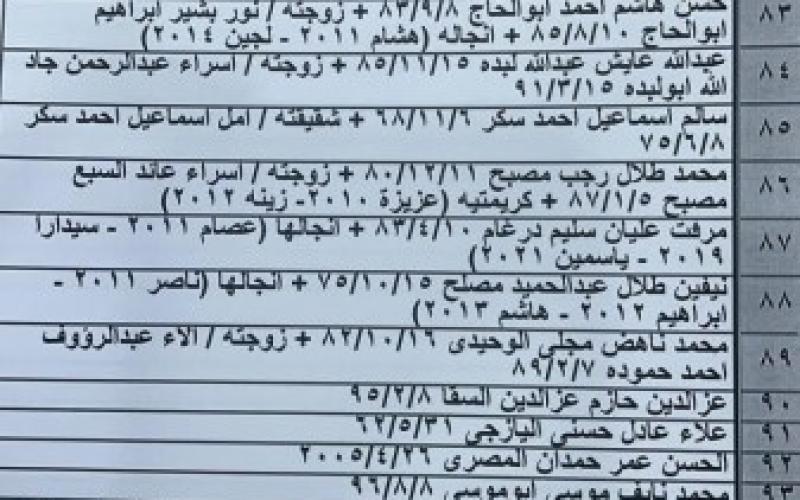 ٨٣ حسن هاشم احمد ابوالحاج ٨٣/٩/٨ + زوجته / نور بشير ابراهيم
ابوالحاج ٨٥/٨/١٠ + انجاله (هشام ٢٠١١ - لجين ٢٠١٤)
٨٤ عبدالله عايش عبدالله لبده ٨٥/١١/١٥ + زوجته / اسراء عبدالرحمن جاد
الله ابولبده ٩١/٣/١٥
٨٥ سالم اسماعيل احمد سكر ٦٨/١١/٦ + شقيقته / امل اسماعيل احمد سكر
٧٥/٦/٨
٨٦ محمد طلال رجب مصبح ٨٠/١٢/١١ + زوجته / اسراء عائد السبع
مصبح ٨٧/١/٥ + كريمتيه (عزيزة ٢٠١٠- زينه ٢٠١٢)
٨٧ مرفت عليان سليم درغام ٨٣/٤/١٠ + انجالها (عصام ٢٠١١ - سيدارا
٢٠١٩ - ياسمين ٢٠٢١)
٨٨ نيفين طلال عبدالحميد مصلح ٧٥/١٠/١٥ + انجالها (ناصر ٢٠١١ -
ابراهيم ٢٠١٢ - هاشم ٢٠١٣)
٨٩ محمد ناهض مجلى الوحيدى ٨٢/١٠/١٦ + زوجته / الاء عبدالرؤوف
احمد حموده ٨٩/٢/٧
٩٠ عزالدين حازم عزالدين السقا ٩٥/٢/٨
٩١ علاء عادل حسنى اليازجي ٦٢/٥/٣١
٩٢ الحسن عمر حمدان المصرى ٢٠٠٥/٤/٢٦
٩٣ محمد نايف موسى ابوموسى ٩٦/٨/٨